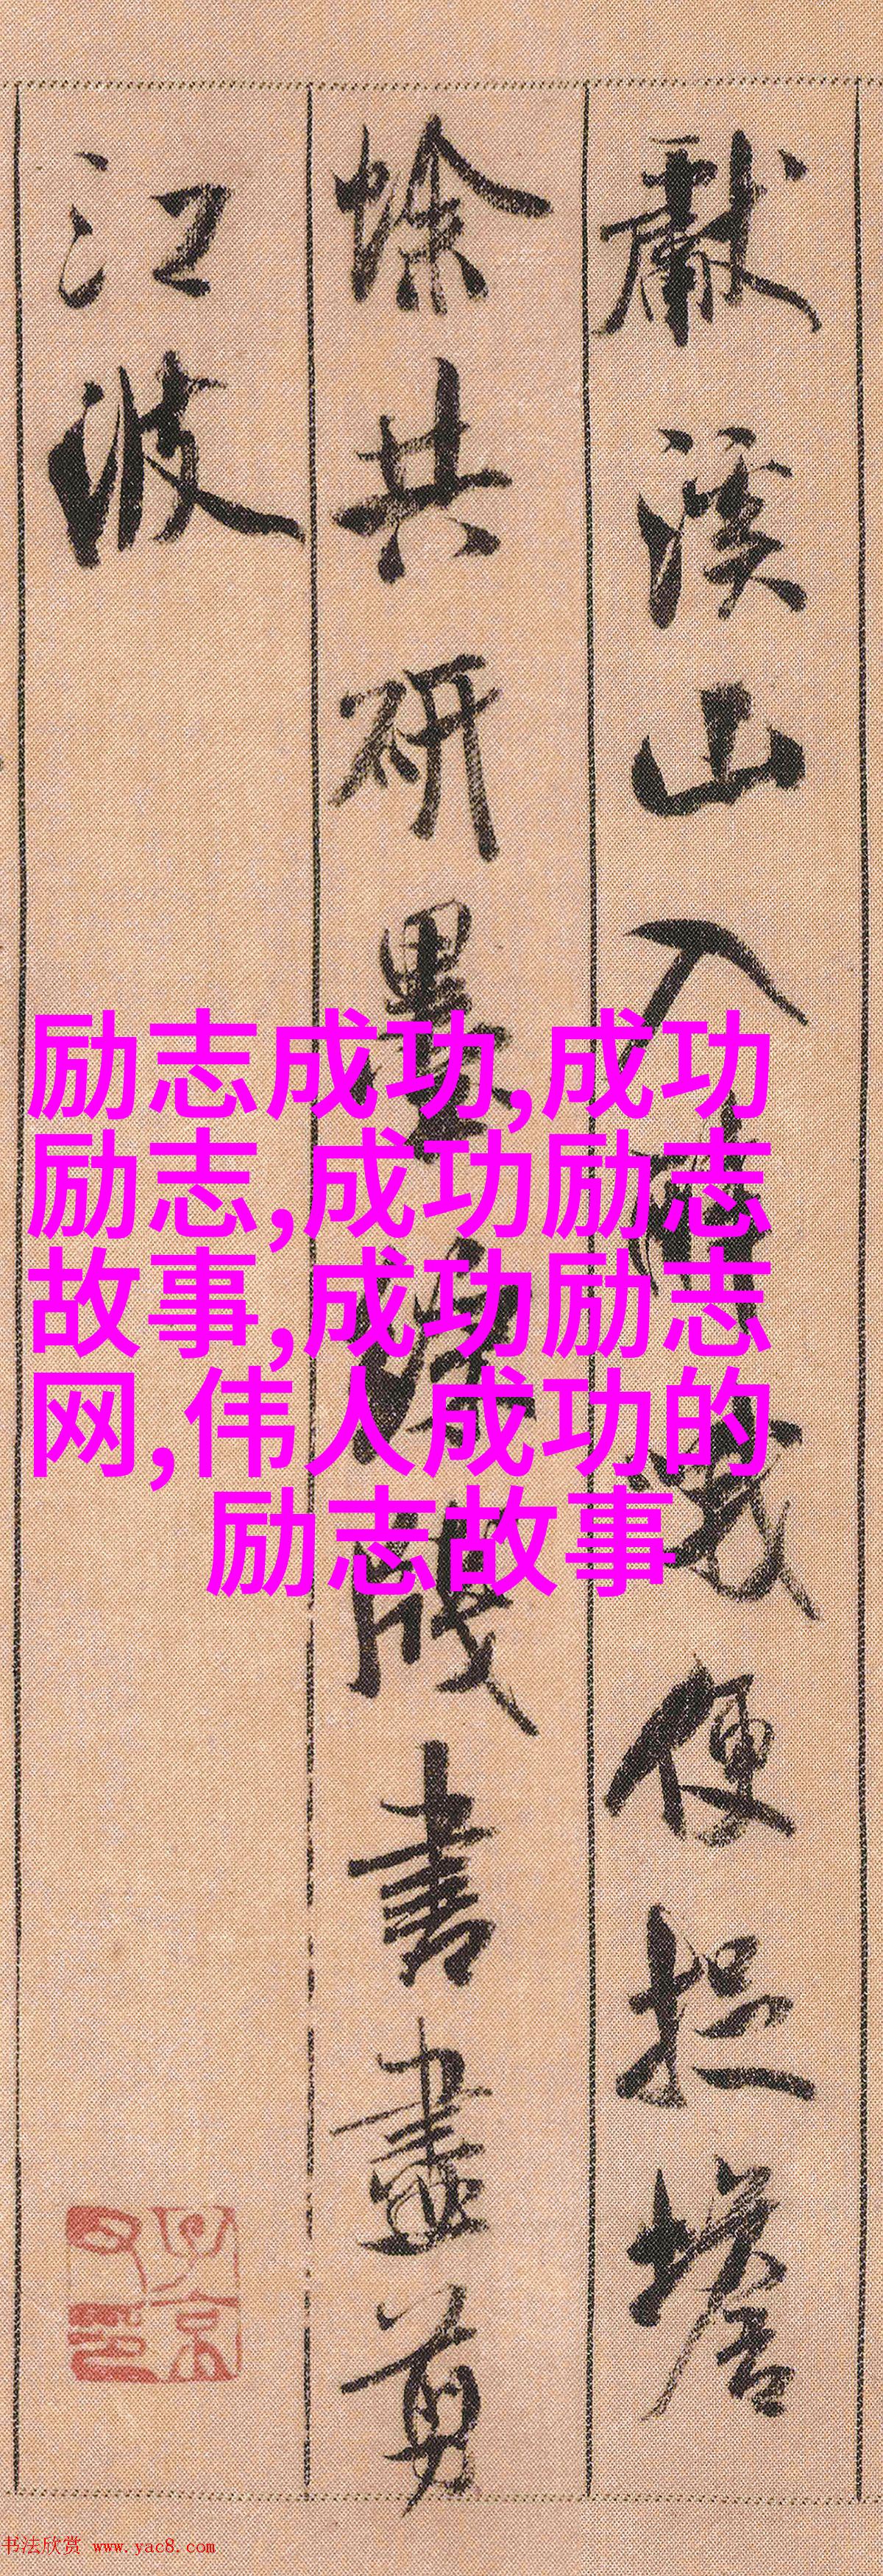 獻溪山入醉哦便捉蟾
蜍共研墨綵牋書盡剪
江波
励志成功,成功
励志,成功励志
故事,成功励志
网,伟人成功的
励志故事
书法欣赏 www.yac8.com